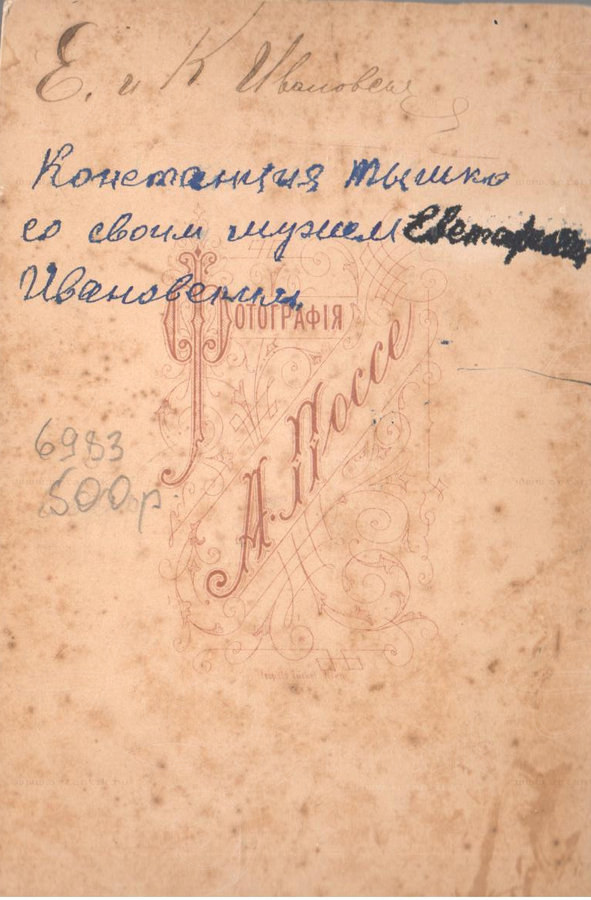 Е. и К. Ивановская
Констанция Тышко
со своим мужем Евстафием
Ивановским
ФОТОГРАФІЯ
А. Поссе
6983
500р